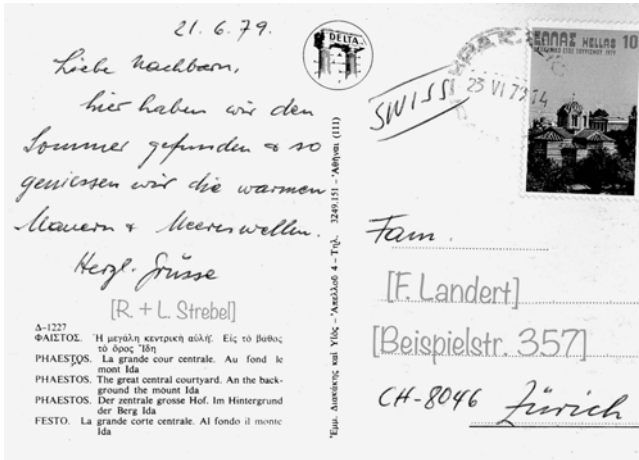 21.6.79.
Liebe Nachbarn,
hier haben wir den
Sommer gefunden & so
geniessen wir die warmen
Mauern & Meereswellen.
Herzl. Grüsse
[R. + L. Strebel]
Δ-1227
ΦΑΙΣΤΟΣ. Ἡ μεγάλη κεντρική αὐλή. Εἰς τό βάθος
τό ὄρος Ἴδη
PHAESTOS. La grande cour centrale. Au fond le
mont Ida
PHAESTOS. The great central courtyard. An the back-
ground the mount Ida
PHAESTOS. Der zentrale grosse Hof. Im Hintergrund
der Berg Ida
FESTO. La grande corte centrale. Al fondo il monte
Ida
DELTA
Ἐμμ. Διακάκης καί Υἱός - Ἀπελλοῦ 4 - Τηλ. 3249.151 - Ἀθῆναι (111)
SWISS
23 VI 79 14
ΕΛΛΑΣ HELLAS 10
Fam.
[F. Landert]
[Beispielstr. 357]
CH-8046 Zürich